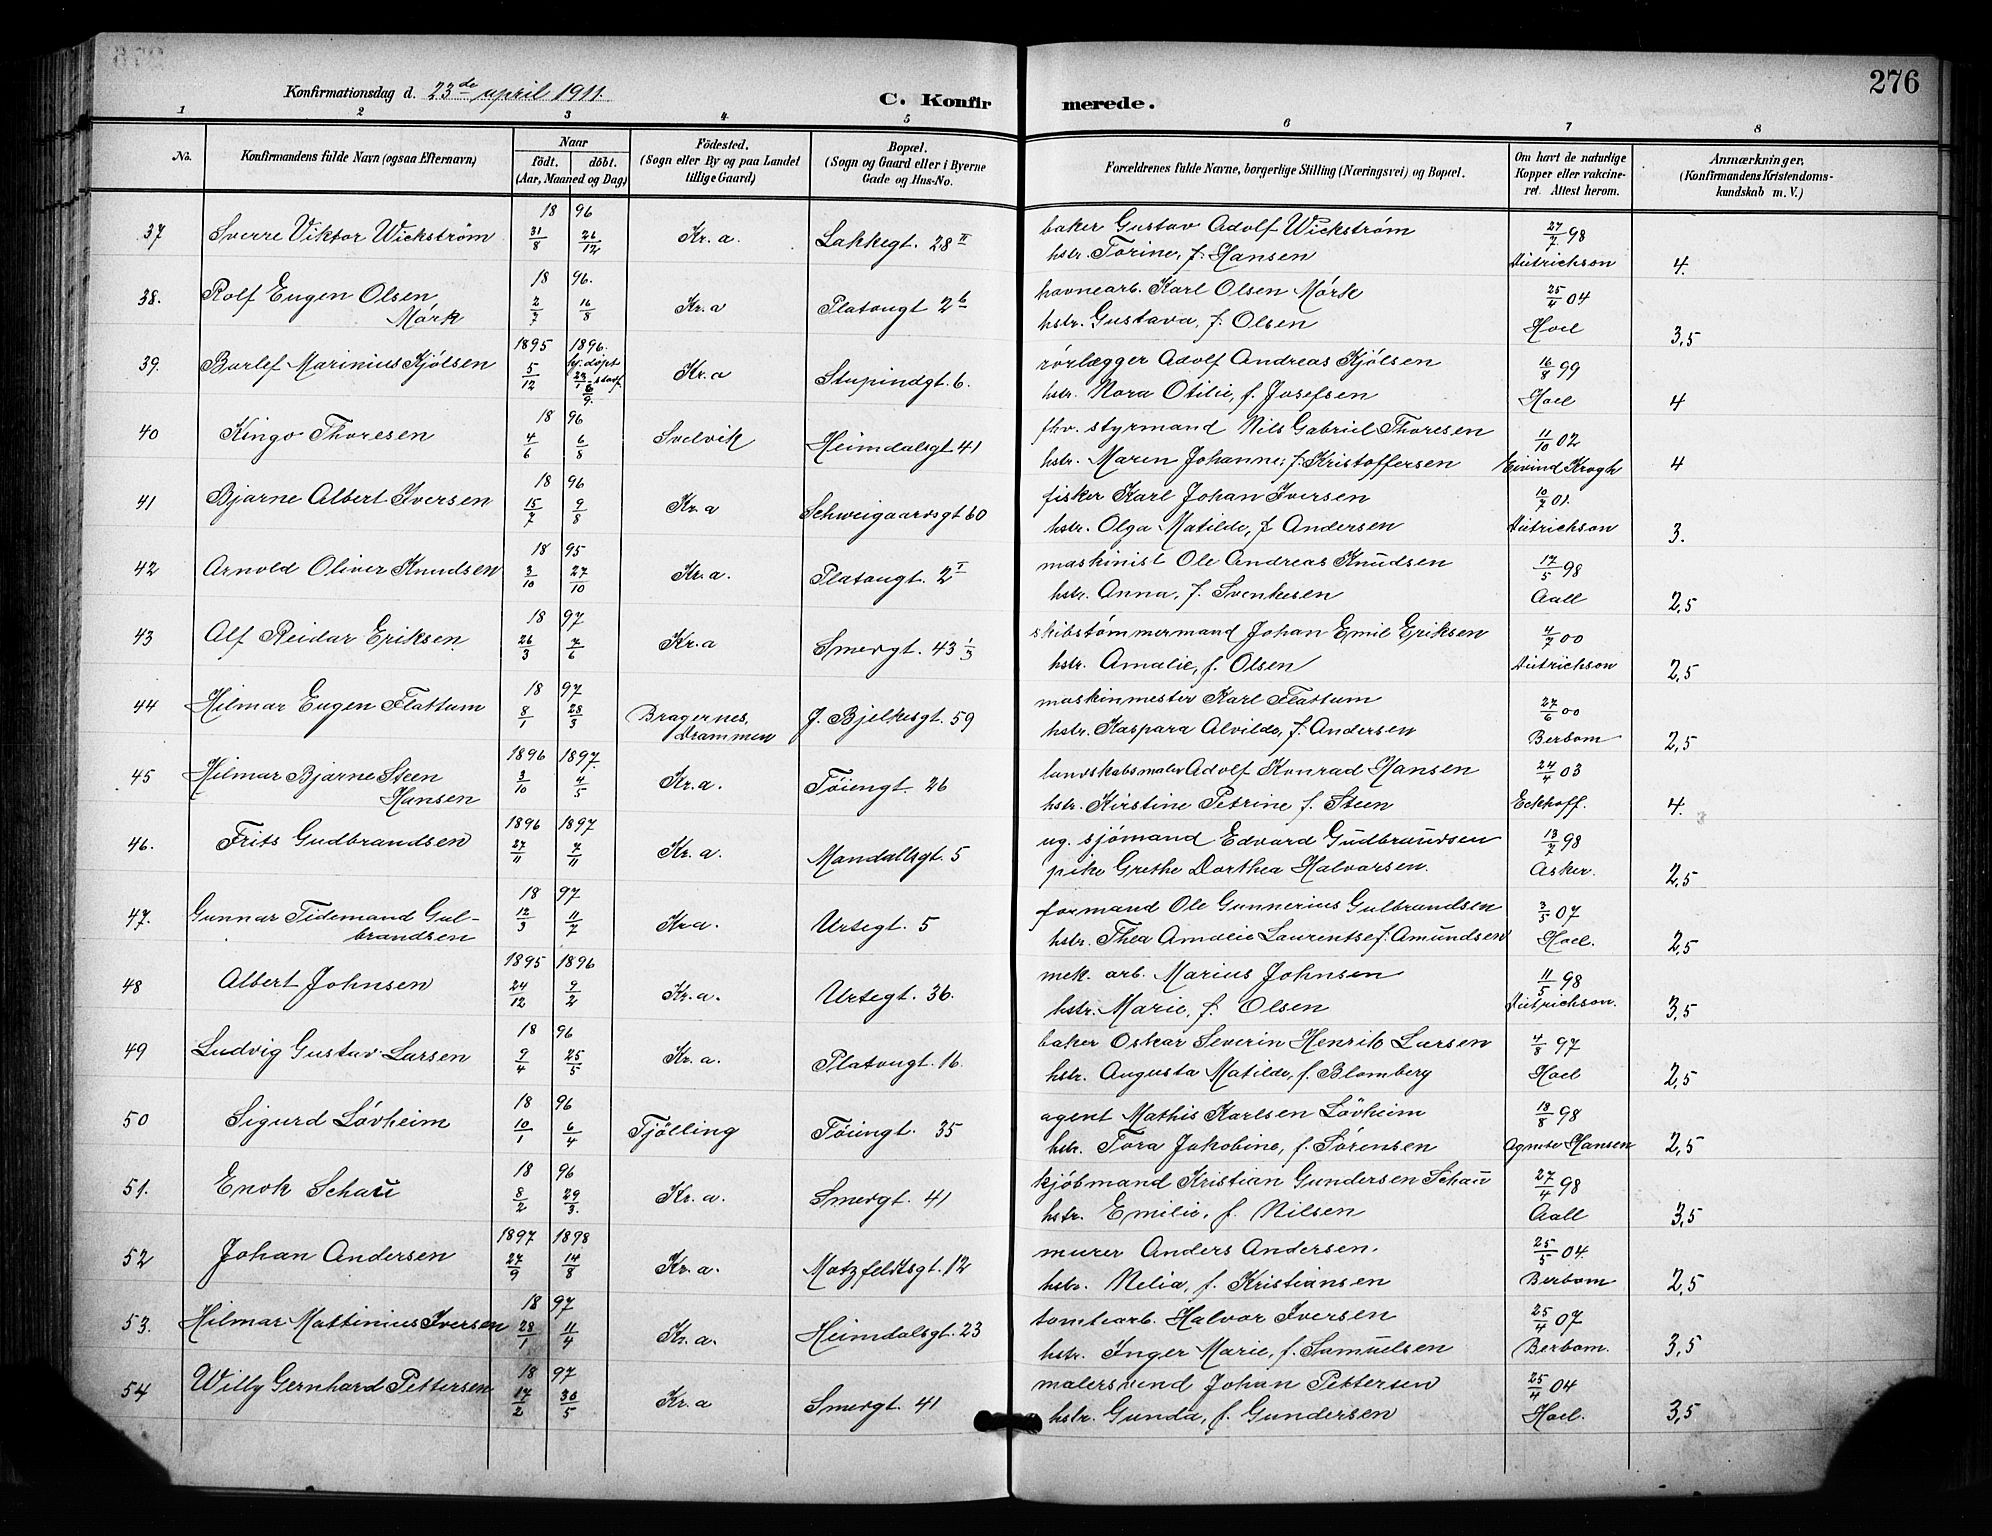 276
Konfirmationsdag d. 23de april 1911.
C. Konfirmerede.
1 2 3 4 5 6 7 8
No. | Konfirmandens fulde Navn (ogsaa Efternavn) | Naar født. døbt. (Aar, Maaned og Dag) | Fødested. (Sogn eller By og paa Landet tillige Gaard) | Bopæl. (Sogn og Gaard eller i Byerne Gade og Hus-No. | Forældrenes fulde Navne, borgerlige Stilling (Næringsvei) og Bopæl. | Om havt de naturlige Kopper eller vakcineret. Attest herom. | Anmærkninger, (Konfirmandens Kristendomskundskab m. V.)
18 96
37 Sverre Viktor Wickstrøm 31/8 26/12 Kr.a. Lakkegt. 28 II baker Gustav Adolf Wickstrøm 27/7 98
hstr. Torine, f. Hansen Dietrichson 4.
18 96.
38. Rolf Eugen Olsen 2/7 16/8 Kr.a Platougt 2b havnearb. Karl Olsen Mørk 25/4 04
Mørk hstr. Gustava, f. Olsen Hoel 3,5
1895 1896.
39. Barlef Marinius Kjølsen 5/12 hj. døpt 23/1 stadf 6/9. Kr.a Stupindgt. 6. rørlægger Adolf Andreas Kjølsen 16/8 99
hstr. Nora Otilie, f. Josefsen Hoel 4
18 96
40 Kingo Thoresen 4/6 6/8 Svelvik Heimdalsgt 41 fhv. styrmand Nils Gabriel Thoresen 11/10 02
hstr. Maren Johanne, f. Kristoffersen Eivind Krogh 4
18 96
41 Bjarne Albert Iversen 15/7 9/8 Kr.a Schweigaardsgt 60 fisker Karl Johan Iversen 10/7 01.
hstr. Olga Matilde, f Andersen Dietrichson 3.
18 95
42 Arnold Oliver Knudsen 3/10 27/10 Kr.a. Platougt. 2 I maskinist Ole Andreas Knudsen 17/5 98
hstr. Anna, f. Svenkesen Aall 2,5
18 97
43 Alf Reidar Eriksen 26/3 7/6 Kr.a Smedgt. 43 skibstømmermand Johan Emil Eriksen 4/7 00
hstr. Amalie, f. Olsen Dietrichson 2,5
18 97
44 Hilmar Eugen Flattum 8/1 28/3 Bragernes, Drammen J. Bjelkesgt. 59 maskinmester Karl Flattum 27/6 00
hstr. Kaspara Alvilde, f. Andersen Berbom 2,5
1896 1897.
45 Hilmar Bjarne Steen 3/10 4/5 Kr.a. Tøiengt. 26 landskabsmaler Adolf Konrad Hansen 24/4 03
Hansen hstr. Kirstine Petrine f. Steen Eckhoff. 4.
1896 1897
46. Frits Gudbrandsen 27/11 7/11 Kr.a. Mandallsgt. 5 ug. sjømand Edvard Gudbrandsen 13/7 98
pike Grethe Dorthea Halvorsen. Asker. 2,5
18 97
47. Gunnar Tidemand Gul- 12/3 11/7 Kr.a. Urtegt. 5 formand Ole Gunnerius Gulbrandsen 3/5 07
brandsen hstr. Thea Amalie Laurentse f. Amundsen Hoel. 2,5
1895 1896
48 Albert Johnsen 24/12 9/2 Kr.a. Urtegt. 36. mek. arb. Marius Johnsen 11/5 98
hstr. Marie, f. Olsen Dietrichson. 3,5
18 96
49 Ludvig Gustav Larsen 9/4 25/5 Kr.a. Platougt. 16. baker Oskar Severin Henrik Larsen 4/8 97
hstr. Augusta Matilde, f. Blomberg Hoel 2,5
18 96
50 Sigurd Løvheim 10/1 6/4 Tjølling Tøiengt. 35 agent Mathis Karlsen Løvheim 18/8 98
hstr. Tora Jakobine, f. Sørensen Agnete Hansen 2,5
18 96
51. Enok Schau 8/2 29/3. Kr.a. Smedgt. 41 kjøbmand Kristian Gundersen Schau 27/4 98
hstr. Emilie, f. Nilsen Aall 3,5
1897 1898
52 Johan Andersen 27/9 14/8 Kr.a. Motzfeldtsgt. 12 murer Anders Andersen. 25/5 04.
hstr. Nelia, f. Kristiansen Berbom 2,5
18 97
53. Hilmar Mattinius Iversen 28/1 11/4 Kr.a. Heimdalsgt. 23 tomtearb. Halvor Iversen 25/4 07
hstr. Inger Marie, f. Samuelsen Berbom. 3,5
18 97
54 Willy Gernhard Pettersen 17/2 30/5 Kr.a Smedgt. 41 malersvend Johan Pettersen 25/4 04
hstr. Gunda, f. Gundersen Hoel. 3,5